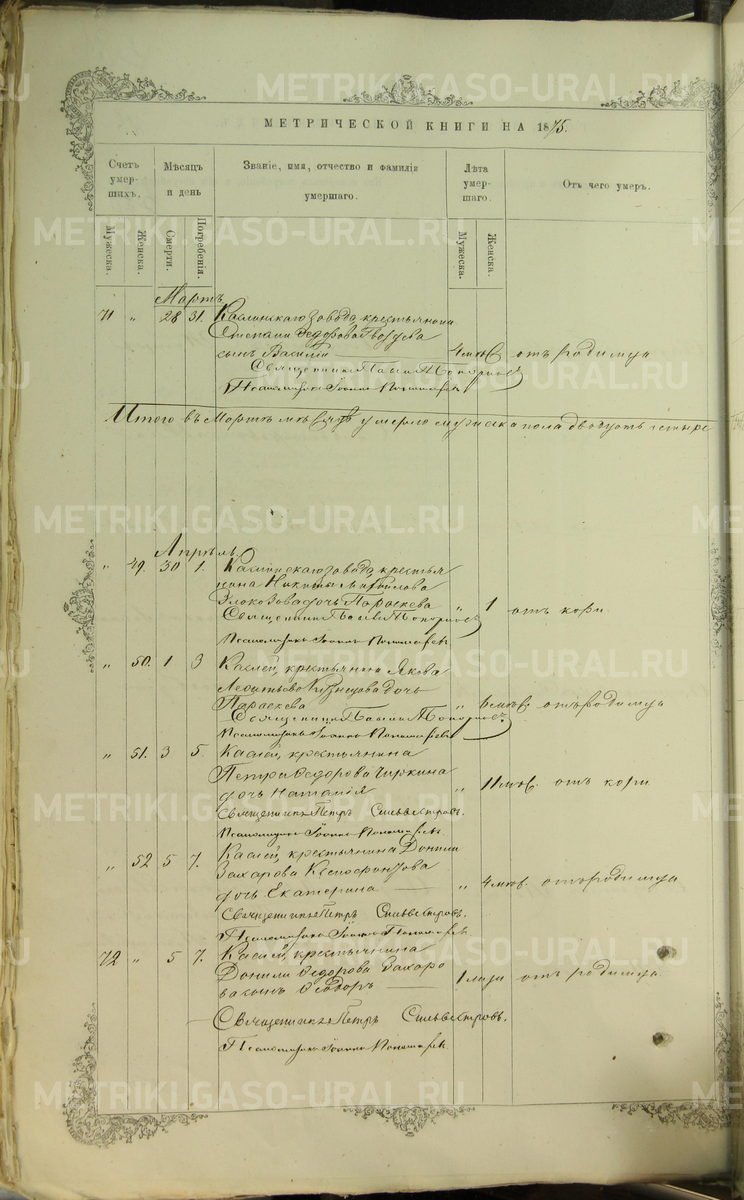 МЕТРИЧЕСКОЙ КНИГИ НА 1875.
Счетъ умершихъ. Мѣсяцъ и день Званіе, имя, отчество и фамилія умершаго. Лѣта умершаго. Отъ чего умеръ.
Мужеска. Женска. Смерти. Погребенія. Мужеска. Женска.
Мартъ
71 " 28 31. Каслинскаго завода крестьянина
Степана Ѳедорова
сынъ Василій 4 мѣс отъ родимца
Священникъ Топорковъ
Псаломщикъ Іоаннъ Пономаревъ
Итого въ Мартѣ мѣсяцѣ умерло мужеска пола двадцать четыре
Апрѣль
" 49. 30 1. Каслинскаго завода крестья
нина Никиты Михайлова
Злоказова дочь Параскева " 1 отъ кори
Священникъ Топорковъ
Псаломщикъ Іоаннъ Пономаревъ
" 50. 1 3 Каслей, крестьянина Якова
Леонтьева Кузнецова дочь
Параскева " 6 мѣс. отъ родимца
Священникъ Топорковъ
Псаломщикъ Іоаннъ Пономаревъ
" 51. 3 5. Каслей, крестьянина
Петра Ѳедорова Чиркина
дочь Наталія " 11 мѣс. отъ кори
Священникъ Петръ Сильвестровъ.
Псаломщикъ Іоаннъ Пономаревъ
" 52 5 7. Каслей, крестьянина Данилы
Захарова Ксенофонтова
дочь Екатерина " 4 мѣс. отъ родимца
Священникъ Петръ Сильвестровъ.
Псаломщикъ Іоаннъ Пономаревъ
72 " 5 7. Каслей, крестьянина
Данилы Ѳедорова Захаро
ва сынъ Ѳедоръ 1 отъ родимца
Священникъ Петръ Сильвестровъ.
Псаломщикъ Іоаннъ Пономаревъ
METRIKI.GASO-URAL.RU